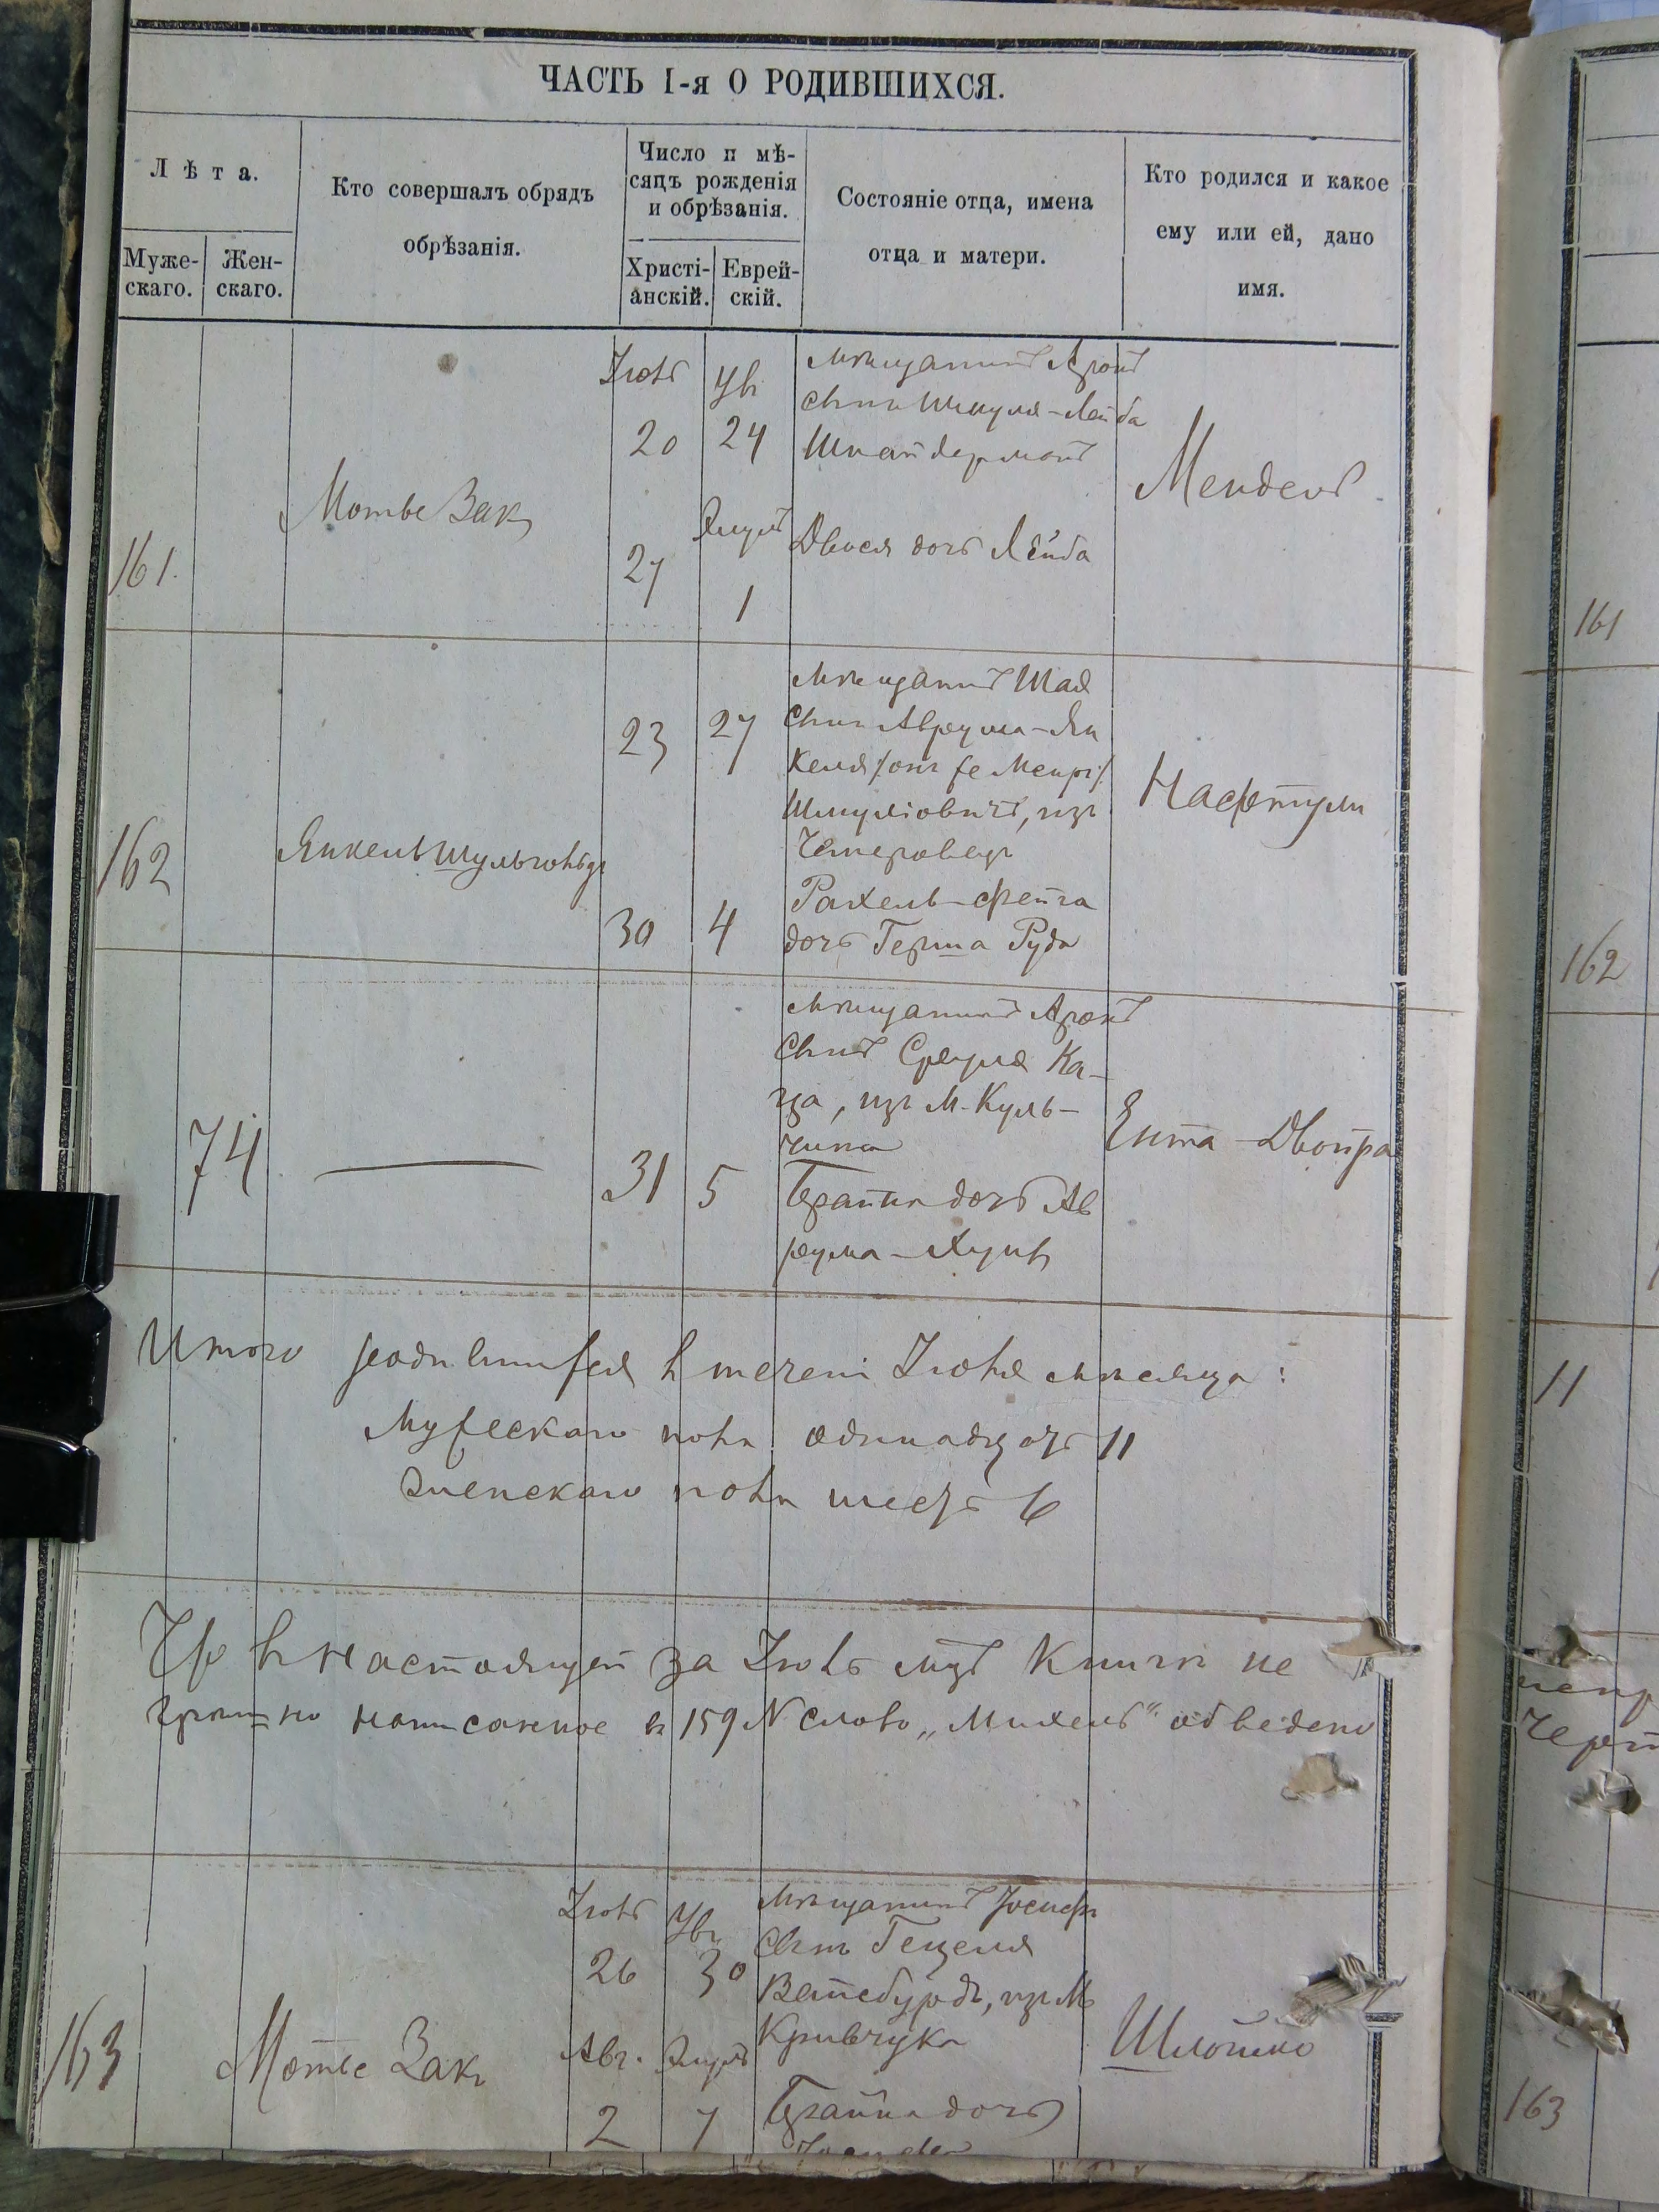 ЧАСТЬ I-я О РОДИВШИХСЯ.
Лѣта.
Муже-
скаго.
Жен-
скаго.
Кто совершалъ обрядъ
обрѣзанія.
Число и мѣ-
сяцъ рожденія
и обрѣзанія.
Христі-
анскій.
Еврей-
скій.
Состояніе отца, имена
отца и матери.
Кто родился и какое
ему или ей, дано
имя.
161.
Мотье Закъ
Іюль
20
27
Увъ
24
Элулъ
1
мѣщанинъ Аронъ
сынъ Шмуля-Лейба
Шнайдерманъ
Двося дочь Лейба
Мендель.
162
Янкель Шульгольдъ
23
30
27
4
мѣщанинъ Шая
сынъ Авреума-Ян
келя /онъ же Меиръ/
Шмуліовичъ, изъ
Чемеровецъ
Рахель-Фейга
дочь Герша Руда
Нафтули
74
31
5
мѣщанинъ Аронъ
сынъ Сруля Ка-
ца, изъ М. Куль-
чина
Брайна дочь Ав
реума-Хунъ
Ента-Двойра
Итого родившихся въ течени Іюля мѣсяца:
Мужескаго пола одинадцать 11
Женскаго пола шесть 6
Что въ настоящей за Іюль мцъ Книги не
написанное въ 159 № слово „Михель" обведено
163
Мотье Закъ
Іюль
26
Авг.
2
Увъ
30
Элулъ
7
мѣщанинъ Іосифъ
сынъ Гецеля
изъ М.
Кривчука
Брайна дочь
Шлоймо
161
162
11
163